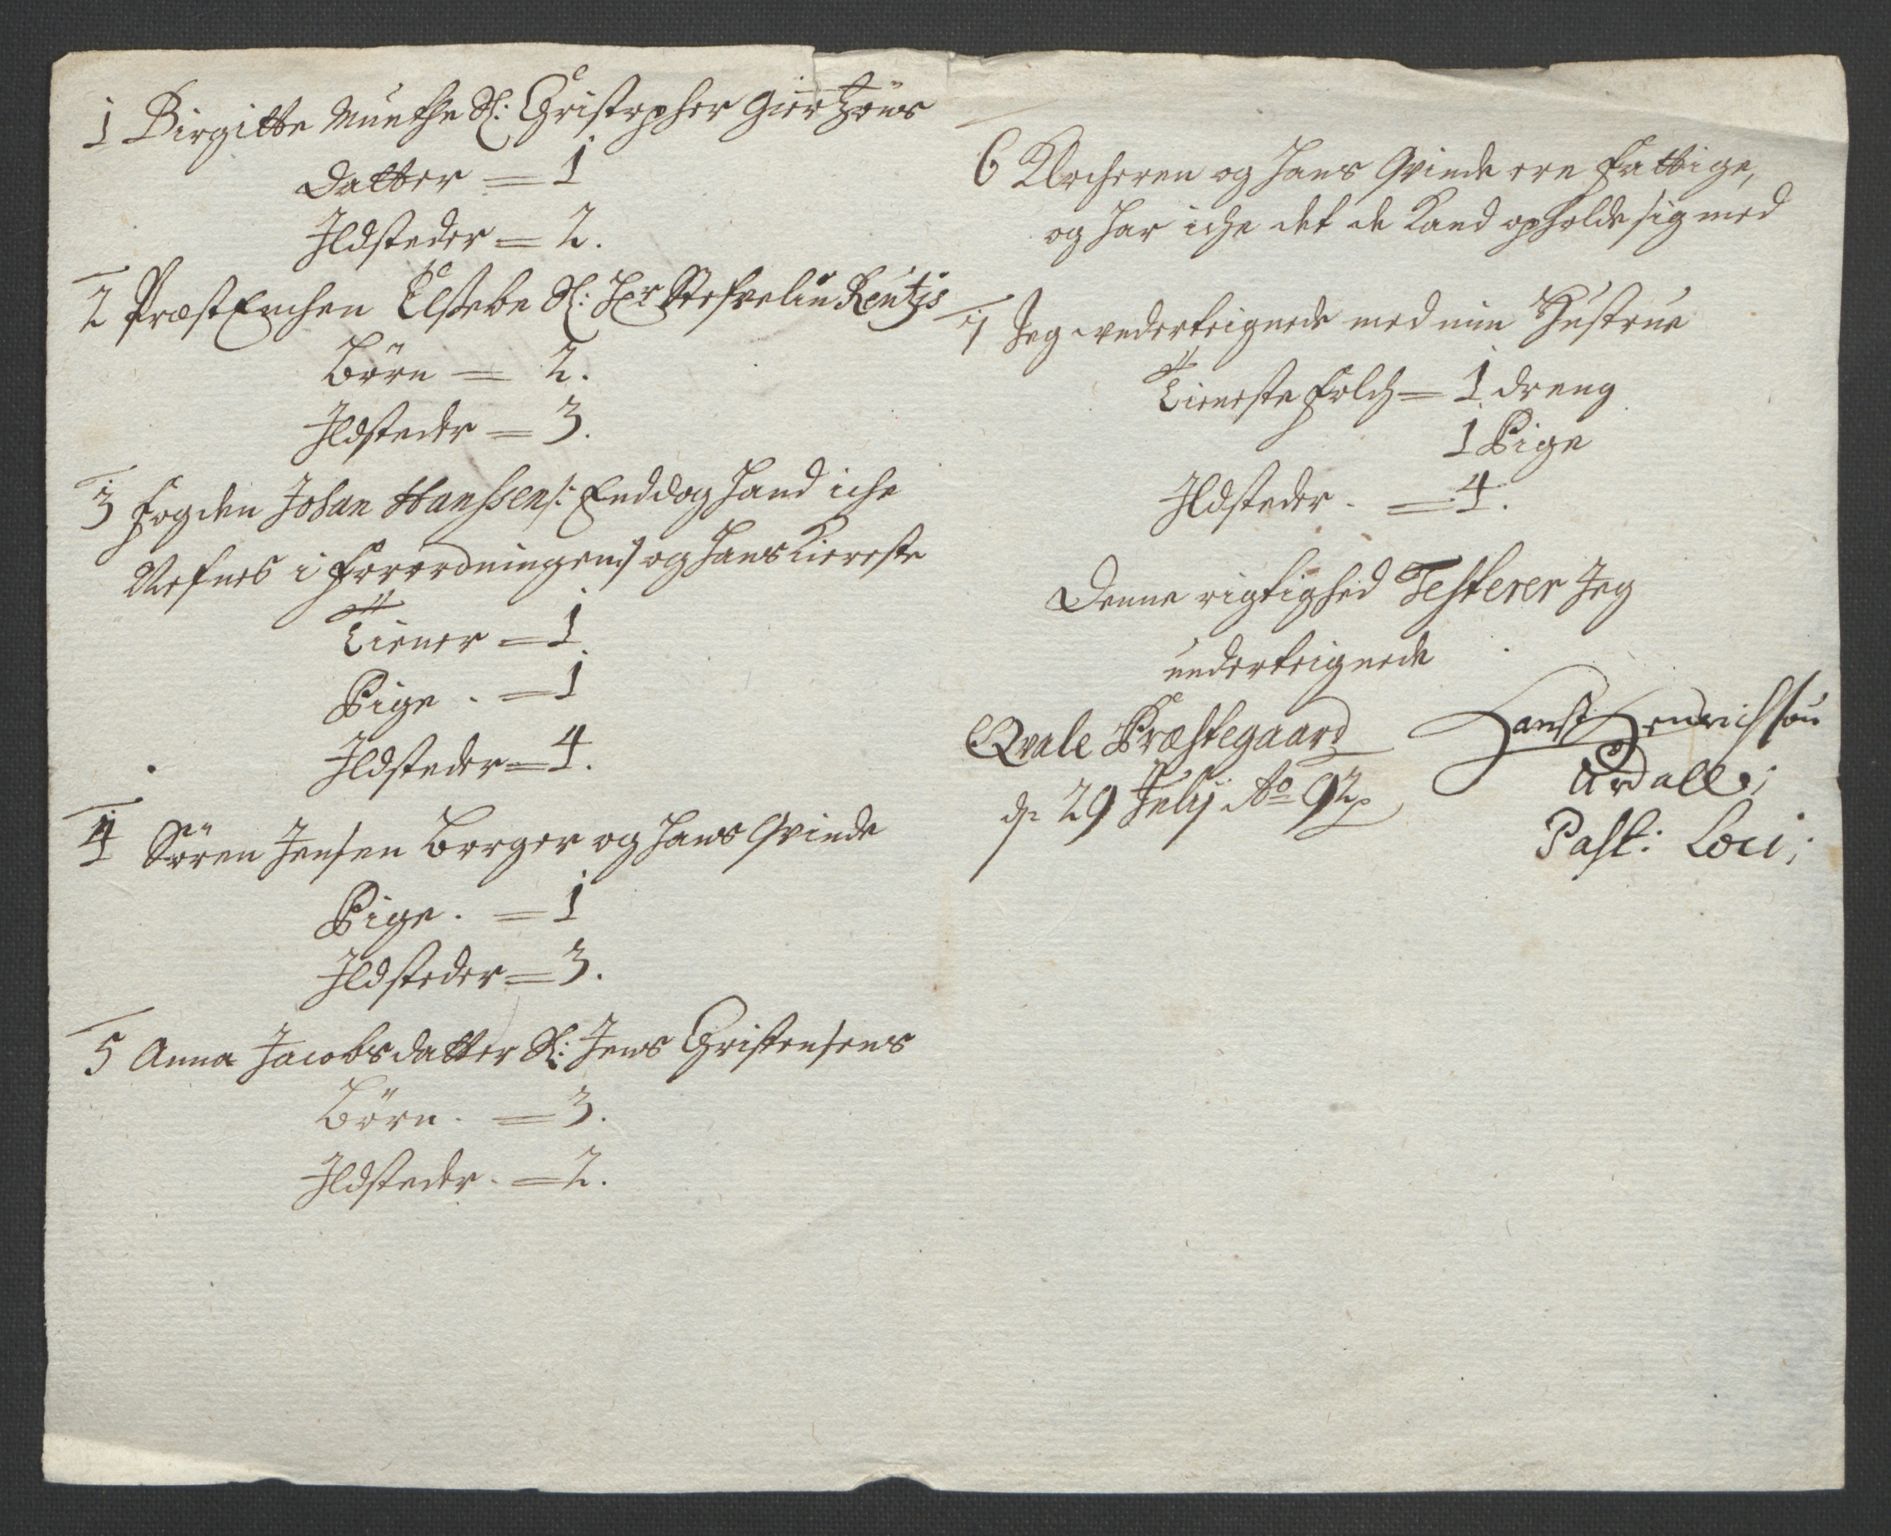 1 Birgitte Munthe Sl: Christopher Giertzøns
Datter = 1
Ildsteder = 2.
2 PræstEnchen Elsebe Sl: Hr Stefvelin Rentzis
Börn = 2.
Ildsteder = 3.
3 Fogden Johan Hanssen /: Enddog hand iche
Nefnes i Forordningen :/ og hans Kiereste
Tiener = 1.
Pige . = 1
Ildsteder = 4.
4 Sören Jensen Borger og hans Qvinde
Pige . = 1
Ildsteder = 3.
5 Anna Jacobsdatter Sl: Jens Christensens
Börn . = 3.
Ildsteder . = 2.
6 Klocheren og hans Qvinde ere fattige,
og har iche det de kand opholde sig med
7 Jeg underteignede med min Hustrue
Tieneste folch = 1 dreng
1 Pige
Ildsteder . = 4.
Denne rigtighed Testerer Jeg
underteignede
Qvale Præstegaard
d. 29 Julij Ao 92
Hans Henrichsøn
Ardall;
Past: Loci;